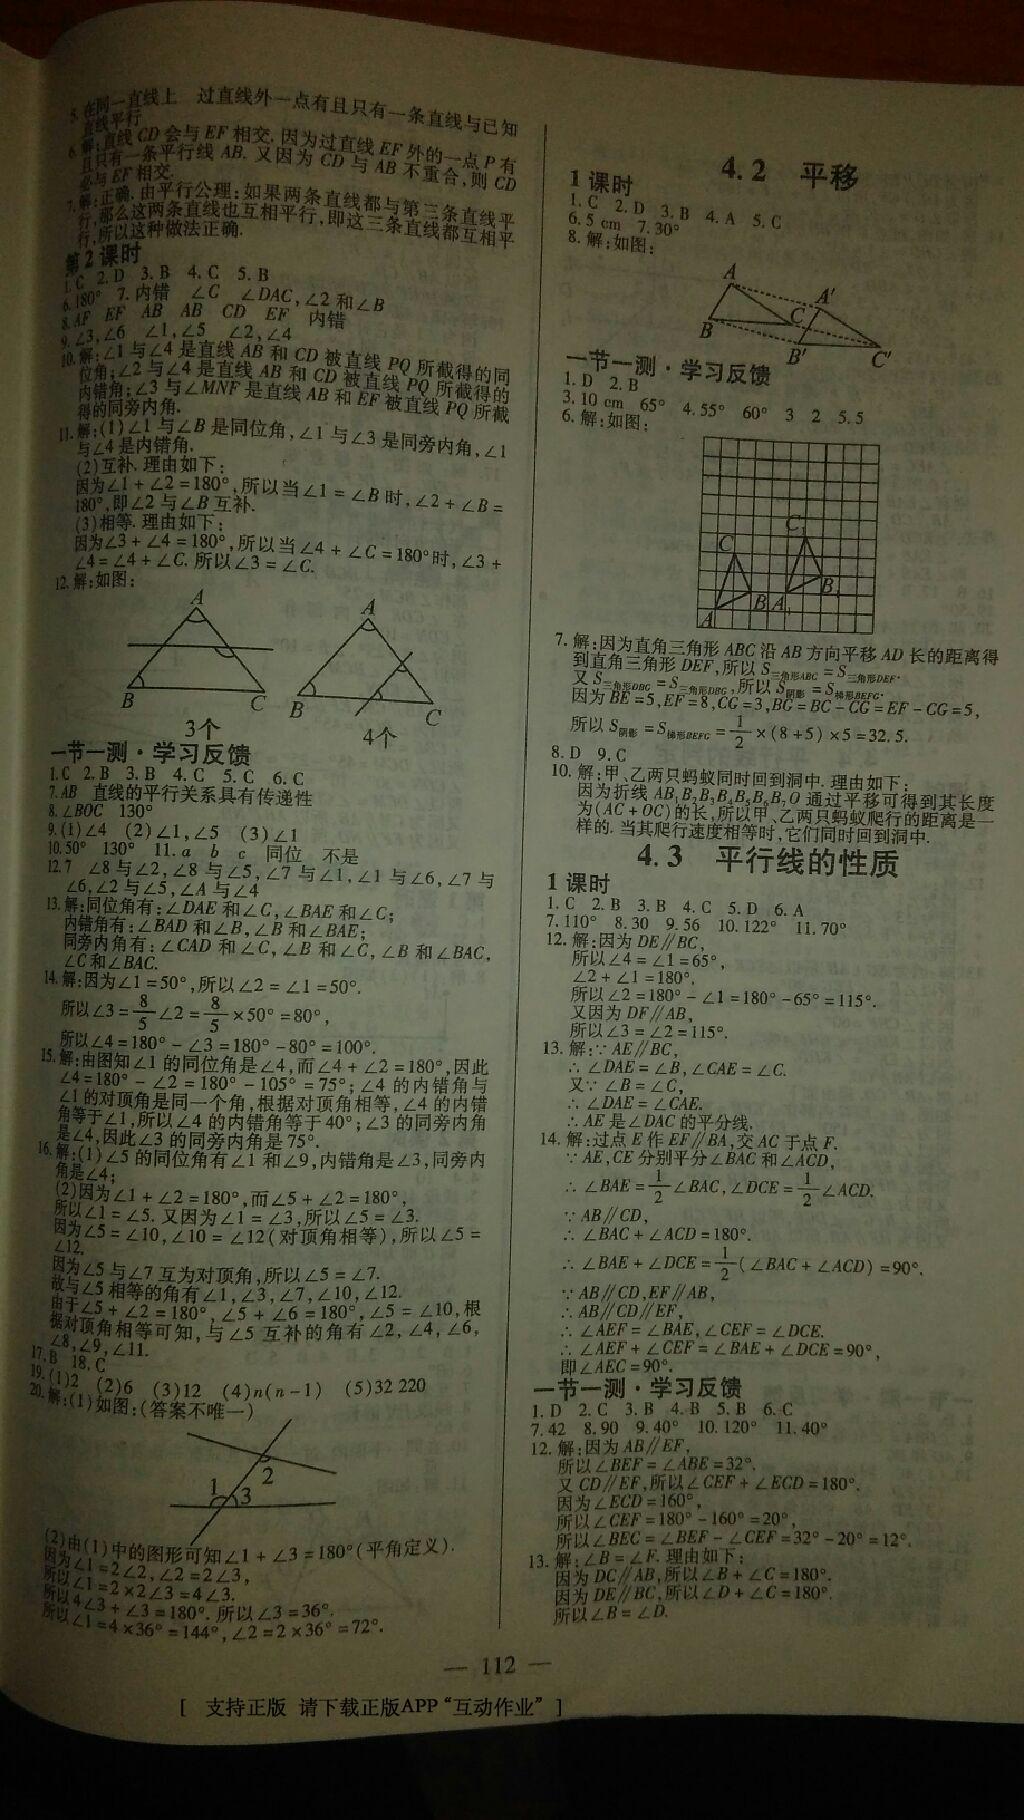 5. 在同一直线上　过直线外一点有且只有一条直线与已知
直线平行
6. 解:直线 CD 会与 EF 相交. 因为过直线 EF 外的一点 P 有
且只有一条平行线 AB. 又因为 CD 与 AB 不重合,则 CD
必与 EF 相交.
7. 解:正确. 由平行公理:如果两条直线都与第三条直线平
行,那么这两条直线也互相平行,即这三条直线都互相平
行,所以这种做法正确.
第 2 课时
1. C　2. D　3. B　4. C　5. B
6. 180°　7. 内错　∠C　∠DAC,∠2 和∠B
8. AF　EF　AB　AB　CD　EF　内错
9. ∠3,∠6　∠1,∠5　∠2,∠4
10. 解:∠1 与∠4 是直线 AB 和 CD 被直线 PQ 所截得的同
位角;∠2 与∠4 是直线 AB 和 CD 被直线 PQ 所截得的
内错角;∠3 与∠MNF 是直线 AB 和 EF 被直线 PQ 所截
得的同旁内角.
11. 解:(1)∠1 与∠B 是同位角,∠1 与∠3 是同旁内角,∠1
与∠4 是内错角.
(2)互补. 理由如下:
因为∠1 + ∠2 = 180°,所以当∠1 = ∠B 时,∠2 + ∠B =
180°,即∠2 与∠B 互补.
(3)相等. 理由如下:
因为∠3 + ∠4 = 180°,所以当∠4 + ∠C = 180°时,∠3 +
∠4 = ∠4 + ∠C. 所以∠3 = ∠C.
12. 解:如图:
A
B
C
3个
A
B
C
4个
一节一测·学习反馈
1. C　2. B　3. B　4. C　5. C　6. C
7. AB　直线的平行关系具有传递性
8. ∠BOC　130°
9. (1)∠4　(2)∠1,∠5　(3)∠1
10. 50°　130°　11. a　b　c　同位　不是
12. 7　∠8 与∠2,∠8 与∠5,∠7 与∠1,∠1 与∠6,∠7 与
∠6,∠2 与∠5,∠A 与∠4
13. 解:同位角有:∠DAE 和∠C,∠BAE 和∠C;
内错角有:∠BAD 和∠B,∠B 和∠BAE;
同旁内角有:∠CAD 和∠C,∠B 和∠C,∠B 和∠BAC,
∠C 和∠BAC.
14. 解:因为∠1 = 50°,所以∠2 = ∠1 = 50°.
所以∠3 = 8/5 ∠2 = 8/5 × 50° = 80°,
所以∠4 = 180° - ∠3 = 180° - 80° = 100°.
15. 解:由图知∠1 的同位角是∠4,而∠4 + ∠2 = 180°,因此
∠4 = 180° - ∠2 = 180° - 105° = 75°;∠4 的内错角与
∠1 的对顶角是同一个角,根据对顶角相等,∠4 的内错
角等于∠1,所以∠4 的内错角等于 40°;∠3 的同旁内角
是∠4,因此∠3 的同旁内角是 75°.
16. 解:(1)∠5 的同位角有∠1 和∠9,内错角是∠3,同旁内
角是∠4;
(2)因为∠1 + ∠2 = 180°,而∠5 + ∠2 = 180°,
所以∠1 = ∠5. 又因为∠1 = ∠3,所以∠5 = ∠3.
因为∠5 = ∠10,∠10 = ∠12(对顶角相等),所以∠5 =
∠12.
因为∠5 与∠7 互为对顶角,所以∠5 = ∠7.
故与∠5 相等的角有∠1,∠3,∠7,∠10,∠12.
由于∠5 + ∠2 = 180°,∠5 + ∠6 = 180°,∠5 = ∠10,根
据对顶角相等可知,与∠5 互补的角有∠2,∠4,∠6,
∠8,∠9,∠11.
17. B　18. C
19. (1)2　(2)6　(3)12　(4)n(n - 1)　(5)32 220
20. 解:(1)如图:(答案不唯一)
1
2
3
(2)由(1)中的图形可知∠1 + ∠3 = 180°(平角定义).
因为∠1 = 2∠2,∠2 = 2∠3,
所以∠1 = 2 × 2∠3 = 4∠3.
所以 4∠3 + ∠3 = 180°. 所以∠3 = 36°.
所以∠1 = 4 × 36° = 144°,∠2 = 2 × 36° = 72°.
4.2　平移
1 课时
1. C　2. D　3. B　4. A　5. C
6. 5 cm　7. 30°
8. 解:如图:
A
A'
B
C
B'
C'
一节一测·学习反馈
1. D　2. B
3. 10 cm　65°　4. 55°　60°　3　2　5. 5
6. 解:如图:
C1
C
A
B
A1
B1
7. 解:因为直角三角形 ABC 沿 AB 方向平移 AD 长的距离得
到直角三角形 DEF,所以 S三角形ABC = S三角形DEF.
又 S三角形DBG = S三角形DBG,所以 S阴影 = S梯形BEFG.
因为 BE = 5,EF = 8,CG = 3,BG = BC - CG = EF - CG = 5,
所以 S阴影 = S梯形BEFG = 1/2 × (8 + 5) × 5 = 32. 5.
8. D　9. C
10. 解:甲、乙两只蚂蚁同时回到洞中. 理由如下:
因为折线 AB1B2B3B4B5B6B7O 通过平移可得到其长度
为(AC + OC)的长,所以甲、乙两只蚂蚁爬行的距离是一
样的. 当其爬行速度相等时,它们同时回到洞中.
4.3　平行线的性质
1 课时
1. C　2. B　3. B　4. C　5. D　6. A
7. 110°　8. 30　9. 56　10. 122°　11. 70°
12. 解:因为 DE∥BC,
所以∠4 = ∠1 = 65°,
∠2 + ∠1 = 180°.
所以∠2 = 180° - ∠1 = 180° - 65° = 115°.
又因为 DF∥AB,
所以∠3 = ∠2 = 115°.
13. 解:∵ AE∥BC,
∴ ∠DAE = ∠B,∠CAE = ∠C.
又∵ ∠B = ∠C,
∴ ∠DAE = ∠CAE.
∴ AE 是∠DAC 的平分线.
14. 解:过点 E 作 EF∥BA,交 AC 于点 F.
∵ AE,CE 分别平分∠BAC 和∠ACD,
∴ ∠BAE = 1/2 ∠BAC,∠DCE = 1/2 ∠ACD.
∵ AB∥CD,
∴ ∠BAC + ∠ACD = 180°.
∴ ∠BAE + ∠DCE = 1/2 (∠BAC + ∠ACD) = 90°.
∵ AB∥CD,EF∥AB,
∴ AB∥CD∥EF,
∴ ∠AEF = ∠BAE,∠CEF = ∠DCE.
∴ ∠AEF + ∠CEF = ∠BAE + ∠DCE = 90°,
即∠AEC = 90°.
一节一测·学习反馈
1. D　2. C　3. B　4. B　5. B　6. C
7. 42　8. 90　9. 40°　10. 120°　11. 40°
12. 解:因为 AB∥EF,
所以∠BEF = ∠ABE = 32°.
又 CD∥EF,所以∠CEF + ∠ECD = 180°.
因为∠ECD = 160°,
所以∠CEF = 180° - 160° = 20°,
所以∠BEC = ∠BEF - ∠CEF = 32° - 20° = 12°.
13. 解:∠B = ∠F. 理由如下:
因为 DC∥AB,所以∠B + ∠C = 180°.
因为 DE∥BC,所以∠D + ∠C = 180°.
所以∠B = ∠D.
— 112 —
[ 支持正版　请下载正版APP“互动作业” ]